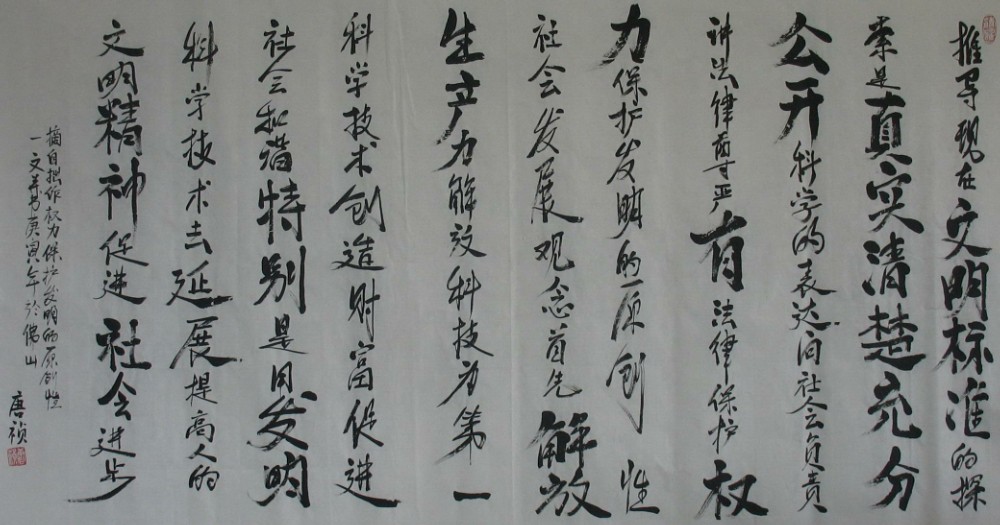 推导现在文明标准的探
索是真实清楚充分
公开科学的表达向社会负责
讲法律尊严有法律保护权
力保护发明的原创性
社会发展观念首先解放
生产力解放科技为第一
科学技术创造财富促进
社会和谐特别是用发明
科学技术去延展提高人的
文明精神促进社会进步
摘自拙作权力保护发明的原创性
一文并书庚寅年于佛山
唐祯